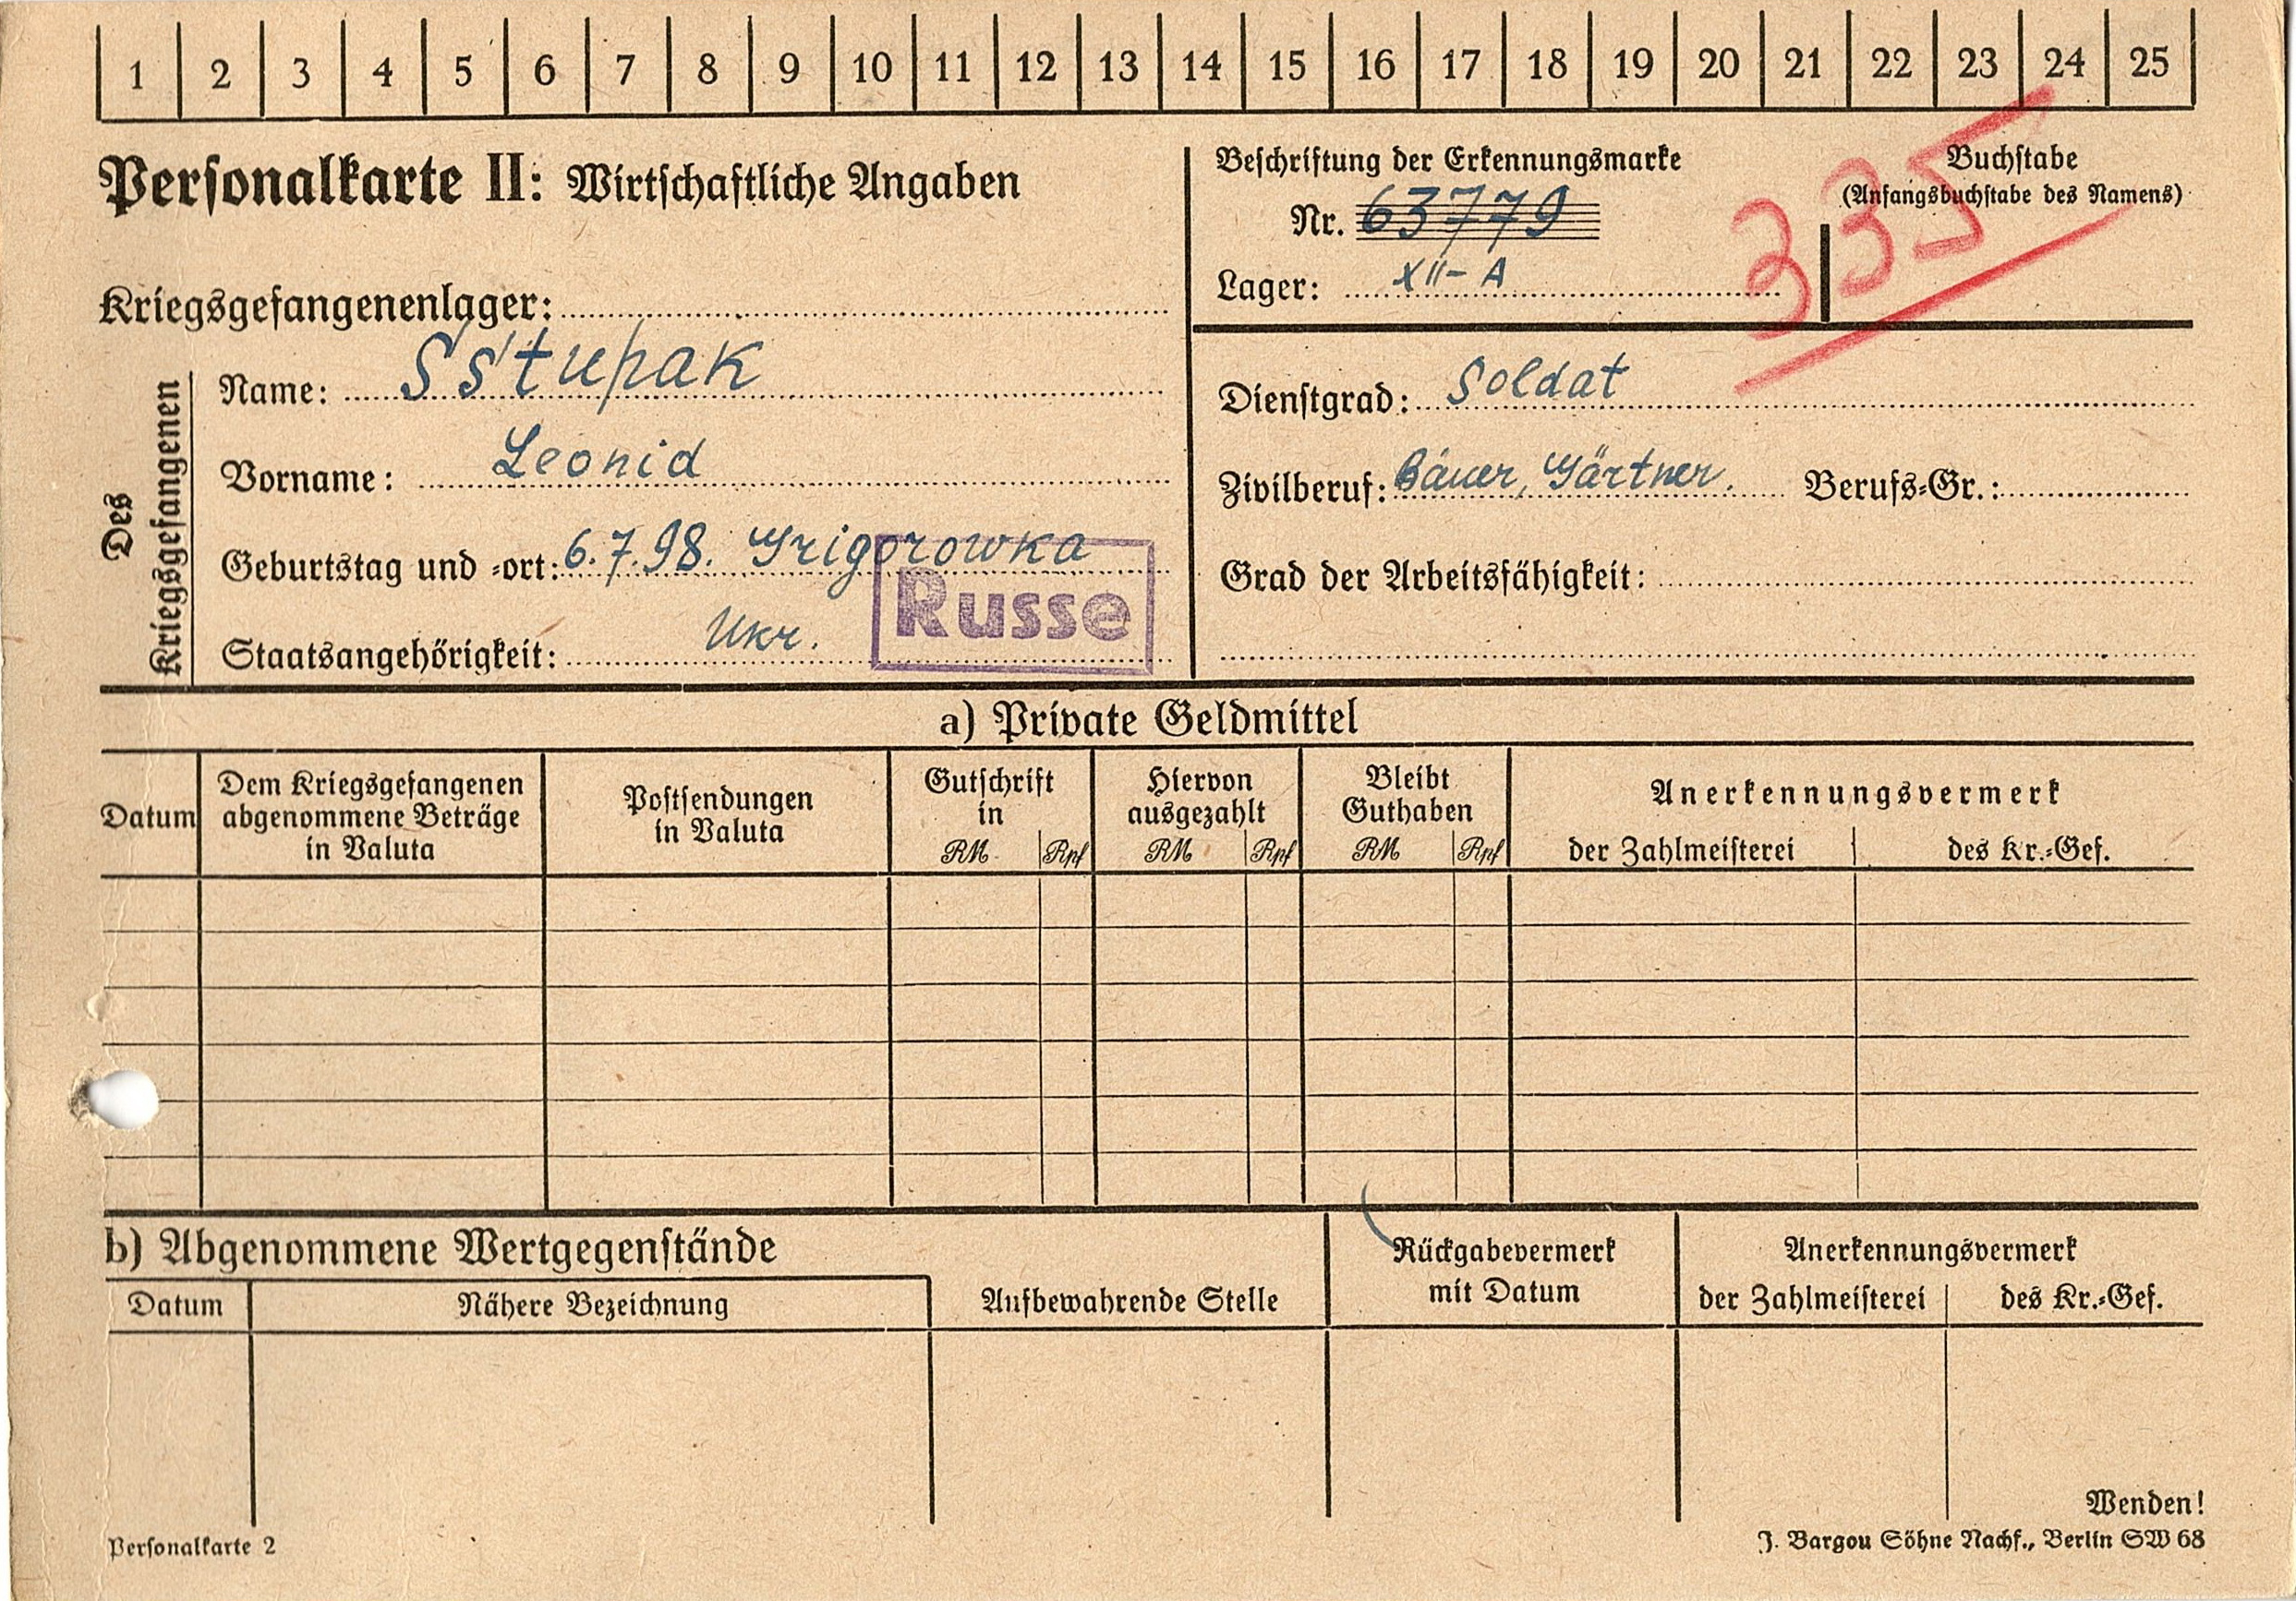 1 2 3 4 5 6 7 8 9 10 11 12 13 14 15 16 17 18 19 20 21 22 23 24 25
Personalkarte II: Wirtschaftliche Angaben
Beschriftung der Erkennungsmarke
Nr. 63779
Lager: XII-A
Buchstabe
(Anfangsbuchstabe des Namens)
335
Kriegsgefangenenlager:
Des
Kriegsgefangenen
Name: Sstupak
Vorname: Leonid
Geburtstag und -ort: 6.7.98. Grigorowka
Staatsangehörigkeit: Ukr.
Russe
Dienstgrad: Soldat
Zivilberuf: Bauer, Gärtner. Berufs-Gr.:
Grad der Arbeitsfähigkeit:
a) Private Geldmittel
Datum
Dem Kriegsgefangenen
abgenommene Beträge
in Valuta
Postsendungen
in Valuta
Gutschrift
in
RM Rpf
Hiervon
ausgezahlt
RM Rpf
Bleibt
Guthaben
RM Rpf
Anerkennungsvermerk
der Zahlmeisterei des Kr.-Gef.
b) Abgenommene Wertgegenstände
Datum Nähere Bezeichnung
Aufbewahrende Stelle
Rückgabevermerk
mit Datum
Anerkennungsvermerk
der Zahlmeisterei des Kr.-Gef.
Wenden!
Personalkarte 2
J. Bargou Söhne Nachf., Berlin SW 68